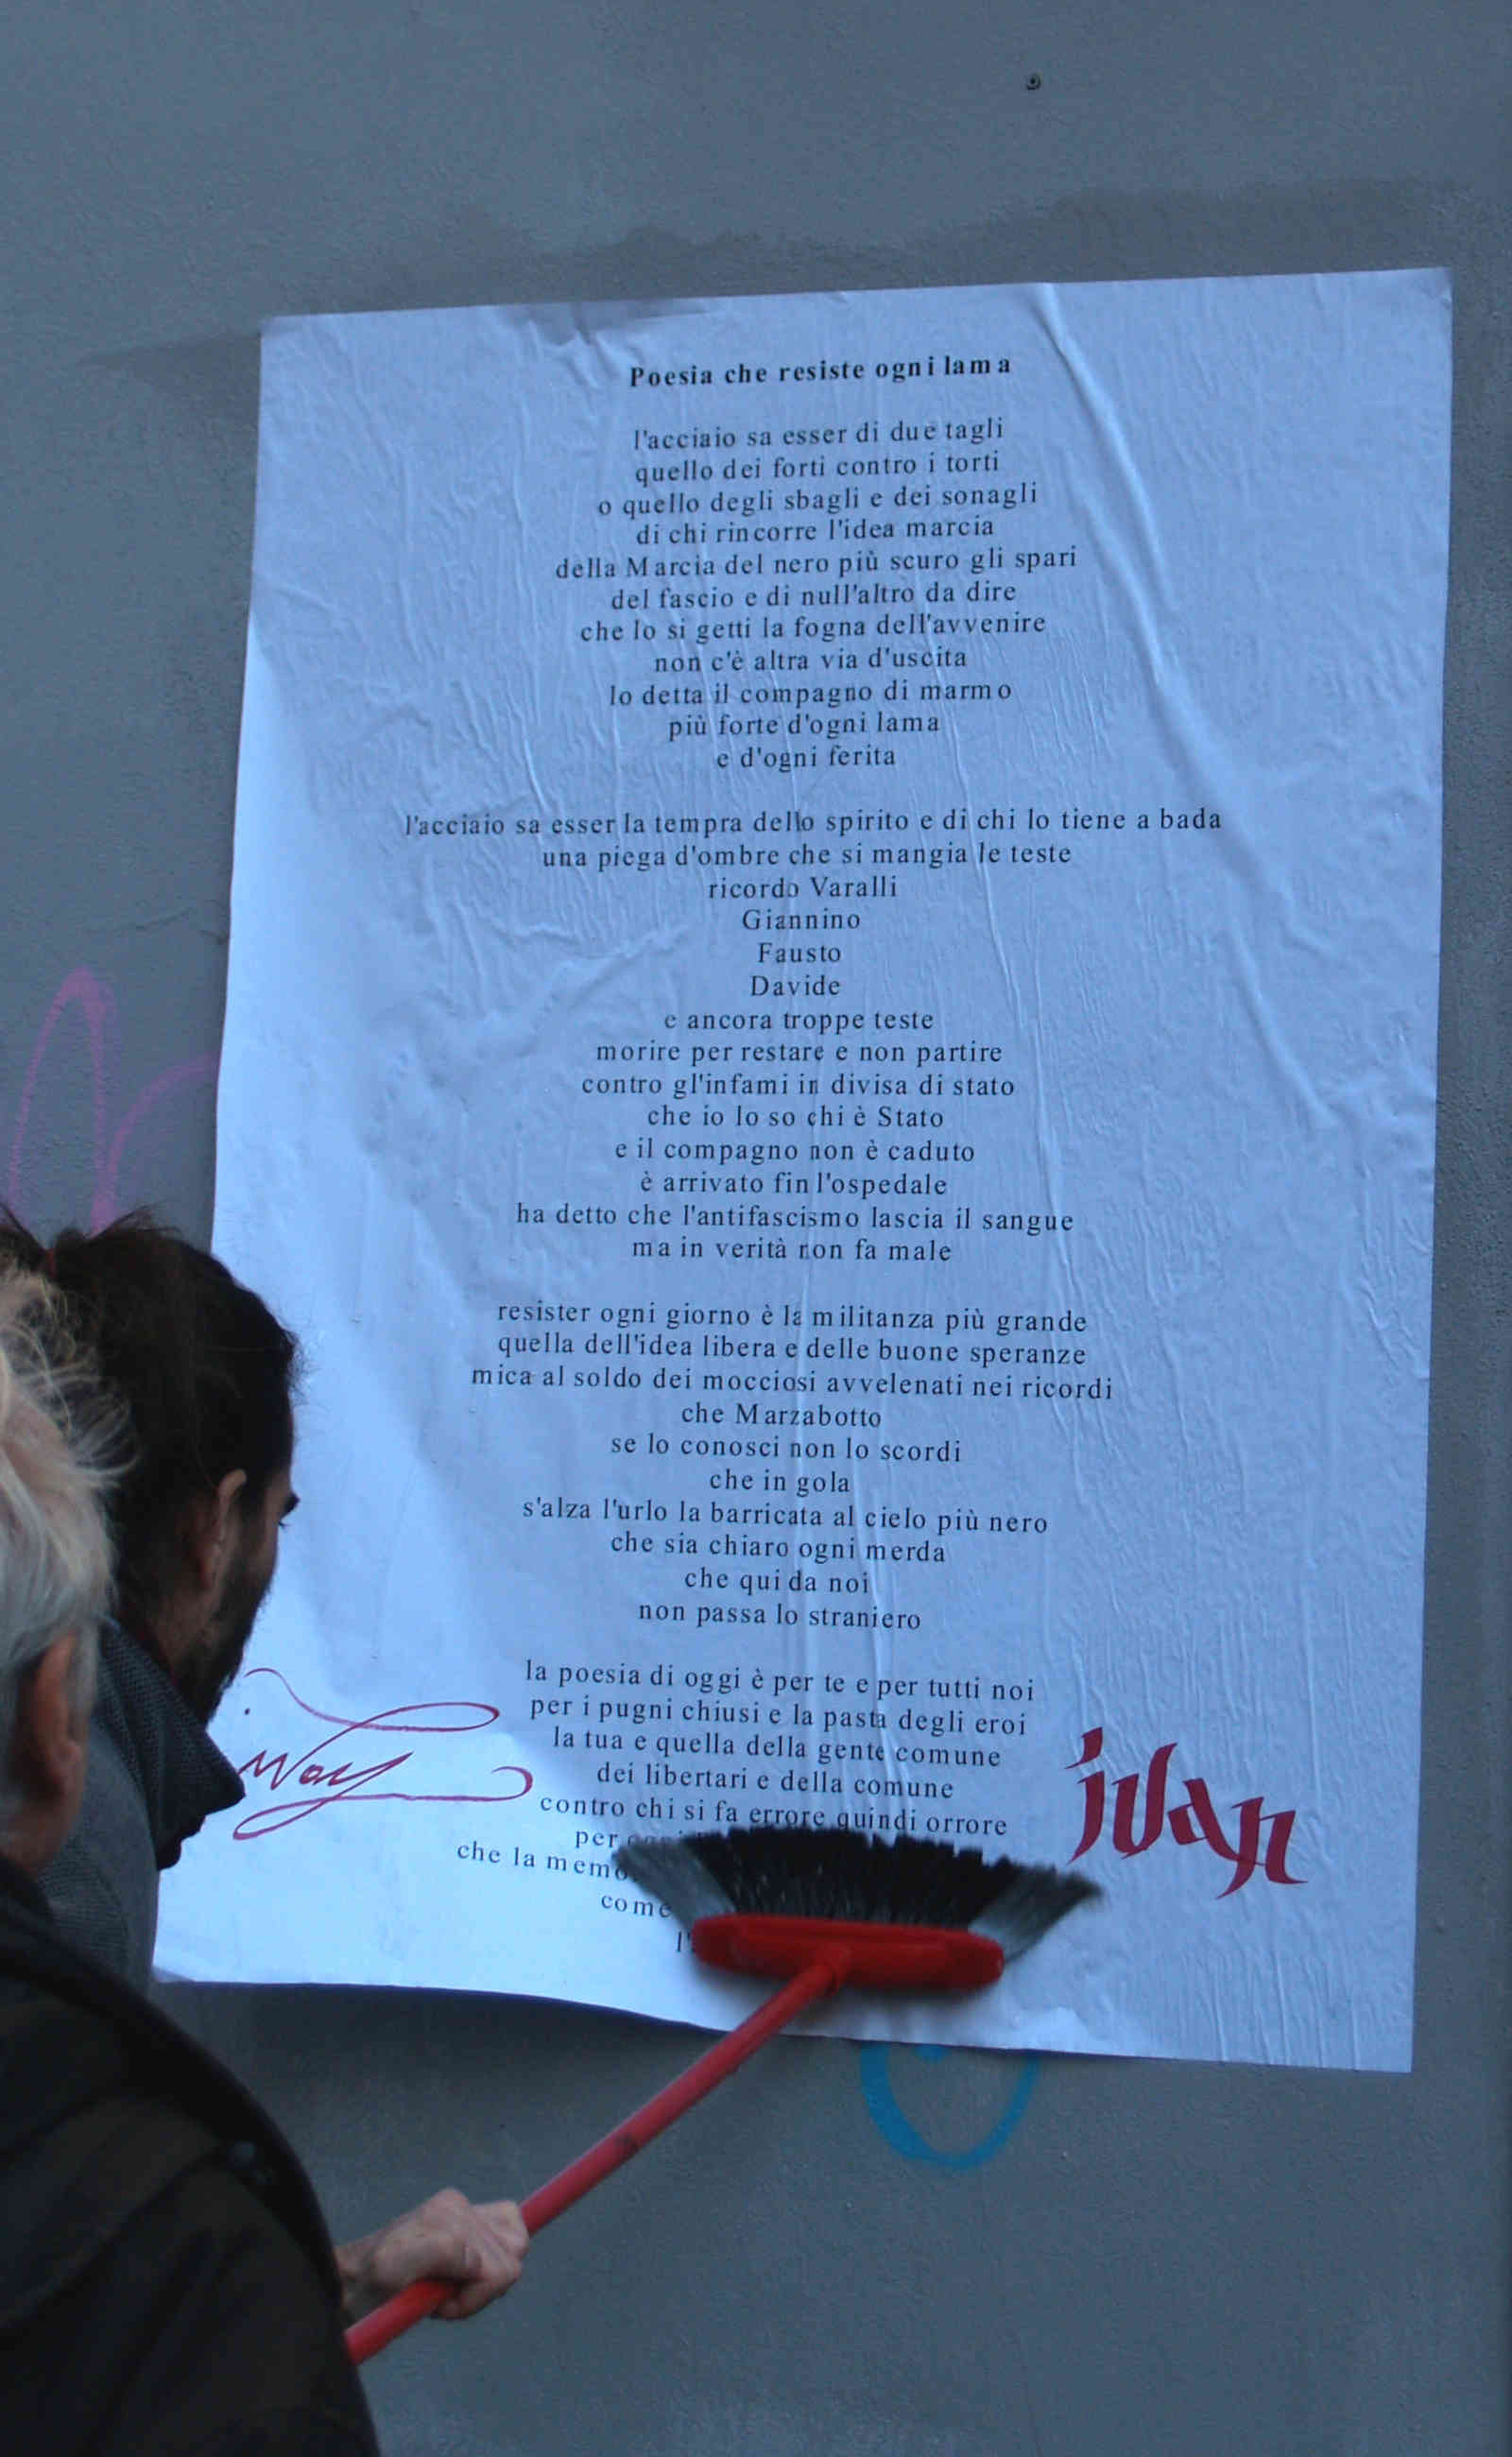 Poesia che resiste ogni lama
l'acciaio sa esser di due tagli
quello dei forti contro i torti
o quello degli sbagli e dei sonagli
di chi rincorre l'idea marcia
della Marcia del nero più scuro gli spari
del fascio e di null'altro da dire
che lo si getti la fogna dell'avvenire
non c'è altra via d'uscita
lo detta il compagno di marmo
più forte d'ogni lama
e d'ogni ferita
l'acciaio sa esser la tempra dello spirito e di chi lo tiene a bada
una piega d'ombre che si mangia le teste
ricordo Varalli
Giannino
Fausto
Davide
e ancora troppe teste
morire per restare e non partire
contro gl'infami in divisa di stato
che io lo so chi è Stato
e il compagno non è caduto
è arrivato fin l'ospedale
ha detto che l'antifascismo lascia il sangue
ma in verità non fa male
resister ogni giorno è la militanza più grande
quella dell'idea libera e delle buone speranze
mica al soldo dei mocciosi avvelenati nei ricordi
che Marzabotto
se lo conosci non lo scordi
che in gola
s'alza l'urlo la barricata al cielo più nero
che sia chiaro ogni merda
che qui da noi
non passa lo straniero
la poesia di oggi è per te e per tutti noi
per i pugni chiusi e la pasta degli eroi
la tua e quella della gente comune
dei libertari e della comune
contro chi si fa errore quindi orrore
per
che la
come
ivan